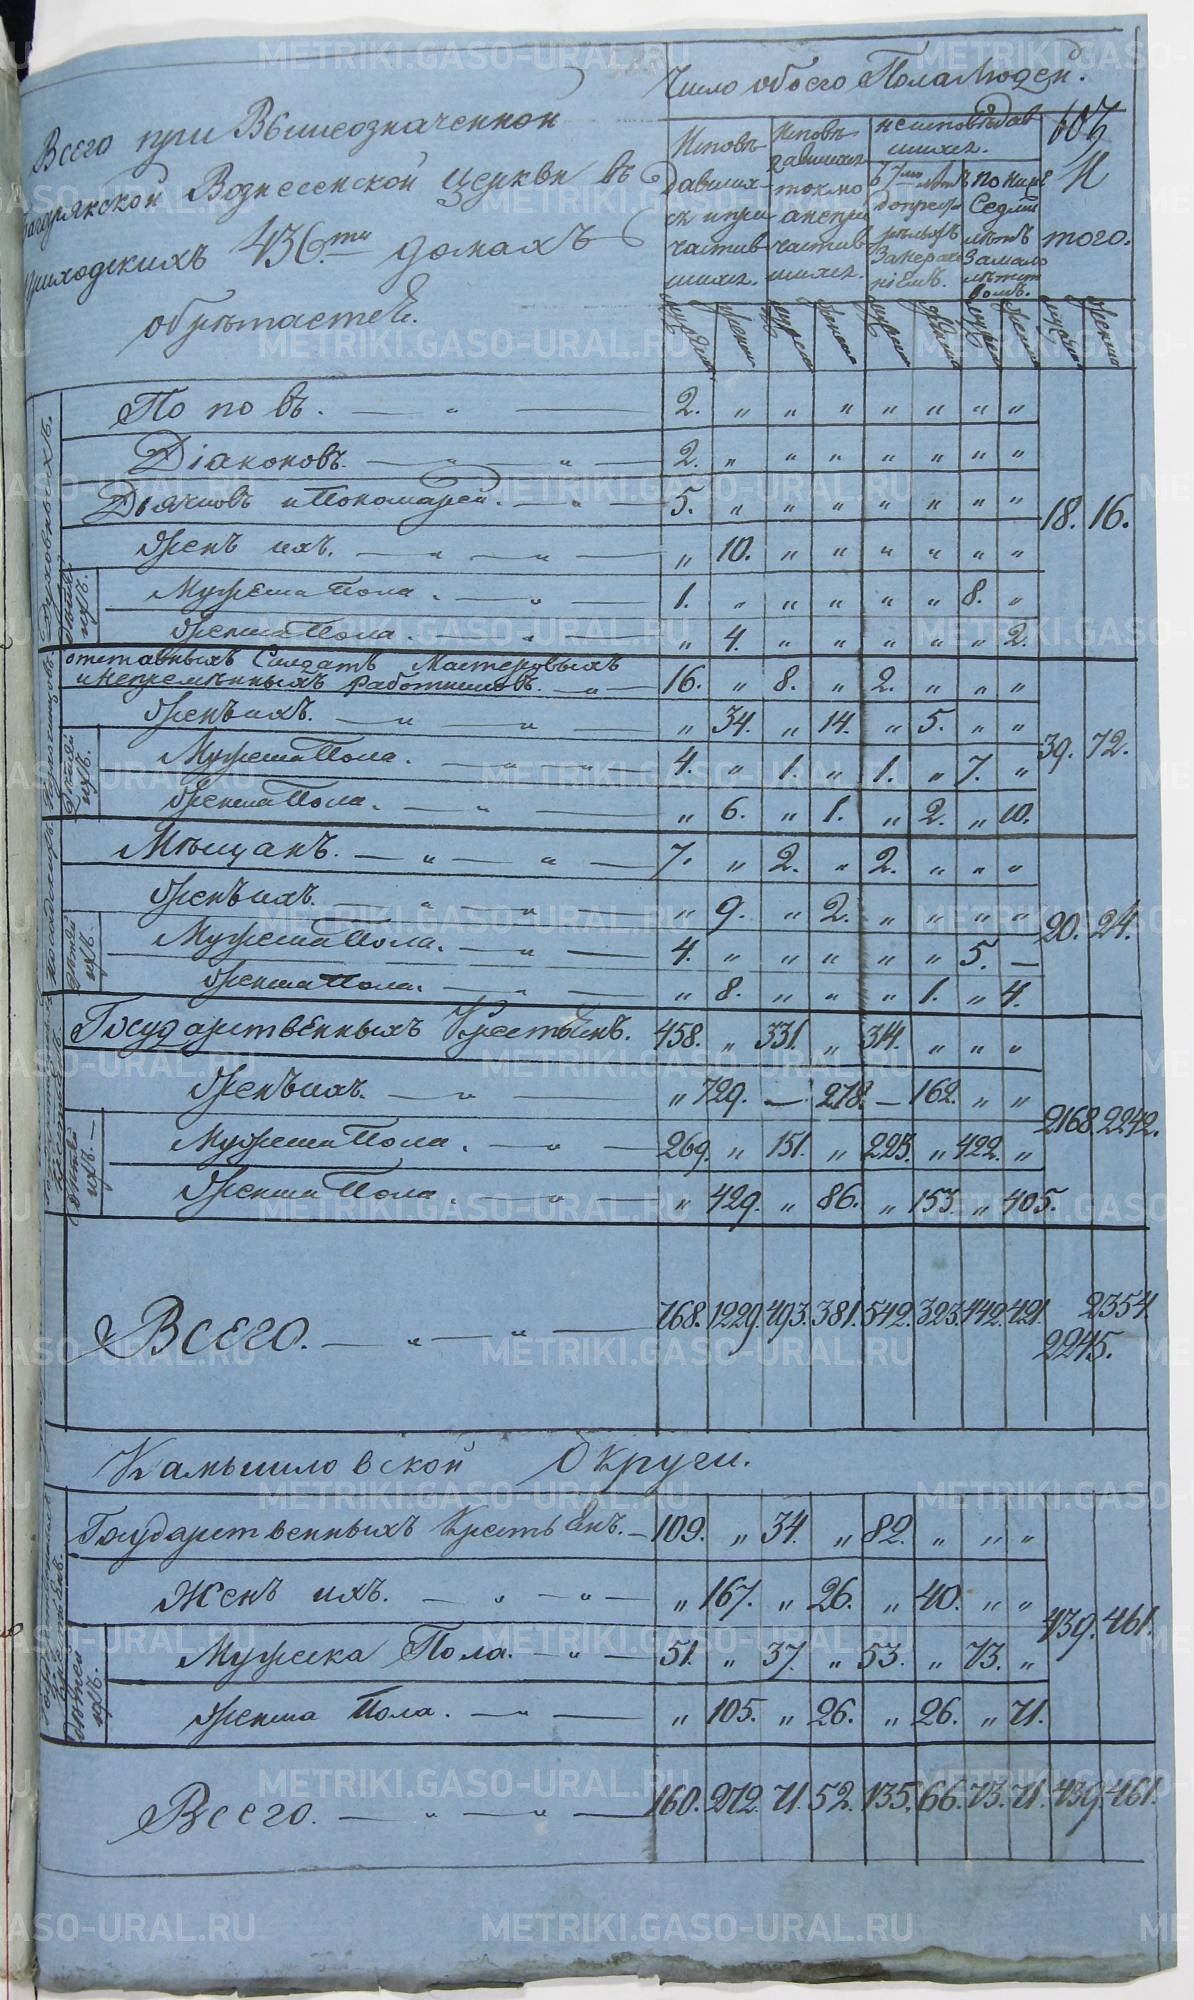 Число обоего Пола Людей.
Всего при Вышеозначенной
Вознесенской церкви въ
приходскихъ 436ти домахъ
обрѣтается.
Исповѣдавших-ся и причастившихся.
Исповѣдавшихся токмо а не причастившихся.
неисповѣдавшихся.
по ниже Седми лѣтъ За малолѣтствомъ.
Итого.
Поповъ. 2. „ „ „ „ „ „ „
Діаконовъ. 2. „ „ „ „ „ „ „
Дьячковъ и Пономарей. 5. „ „ „ „ „ „ „
18. 16.
Женъ ихъ. „ 10. „ „ „ „ „ „
Дѣтей ихъ.
Мужеска Пола. 1. „ „ „ „ „ 8. „
Женска Пола. „ 4. „ „ „ „ „ 2.
отставныхъ Солдатъ Мастеровыхъ
и непремѣнныхъ работниковъ. 16. „ 8. „ 2. „ „ „
Женъ ихъ. „ 34. „ 14. „ 5. „ „
39. 72.
Дѣтей ихъ.
Мужеска Пола. 4. „ 1. „ 1. „ 7. „
Женска Пола. „ 6. „ 1. „ 2. „ 10.
Мѣщанъ. 7. „ 2. „ 2. „ „ „
Женъ ихъ. „ 9. „ 2. „ „ „ „
20. 24.
Дѣтей ихъ.
Мужеска Пола. 4. „ „ „ „ „ 5. —
Женска Пола. „ 8. „ „ „ 1. „ 4.
Государственныхъ Крестьянъ. 458. „ 331. „ 314. „ „ „
Женъ ихъ. „ 729. — 278. — 162. „ „
2168. 2242.
Дѣтей ихъ.
Мужеска Пола. 269. „ 151. „ 223. „ 422. „
Женска Пола. „ 429. „ 86. „ 153. „ 405.
Всего. 768. 1229. 493. 381. 542. 323. 442. 421. 2354.
2245.
Камышловской Округи.
Государственныхъ Крестьянъ. 109. „ 34. „ 82. „ „ „
Женъ ихъ. „ 167. „ 26. „ 40. „ „
439. 461.
Дѣтей ихъ.
Мужеска Пола. 51. „ 37. „ 53. „ 73. „
Женска Пола. „ 105. „ 26. „ 26. „ 71.
Всего. 160. 272. 71. 52. 135. 66. 73. 71. 439. 461.
METRIKI.GASO-URAL.RU